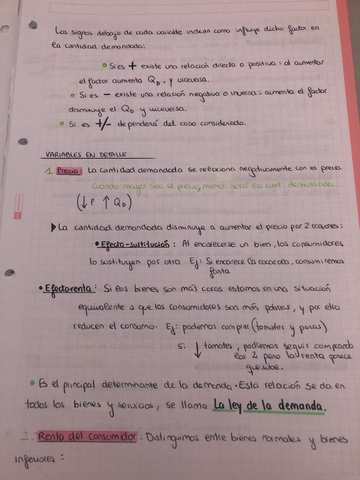 Los signos debajo de cada variable indican como influye dicho factor en
la cantidad demandada:
• Si es + existe una relación directa o positiva: al aumentar
el factor aumenta QD, y viceversa.
• Si es − existe una relación negativa o inversa: aumenta el factor
disminuye el QD y viceversa.
• Si es +/− dependerá del caso considerado.
VARIABLES EN DETALLE
1. Precio: La cantidad demandada se relaciona negativamente con el precio.
Cuando mayor sea el precio, menor será la cant. demandada.
(↓P ↑QD)
▶ La cantidad demandada disminuye a aumentar el precio por 2 razones:
• Efecto-sustitución: Al encarecerse un bien, los consumidores
lo sustituyen por otro. Ej: Si encarece la cocacola, consumiremos
fanta
• Efecto renta: Si los bienes son más caros estamos en una situación
equivalente a que los consumidores son más pobres, y por ello
reducen el consumo. Ej: podemos comprar (tomates y peras)
si ↓ tomates, podríamos seguir comprando
los 2 pero la renta parece
que sube.
• Es el principal determinante de la demanda. Esta relación se da en
todos los bienes y servicios, se llama La ley de la demanda.
2. Renta del consumidor: Distinguimos entre bienes normales y bienes
inferiores: